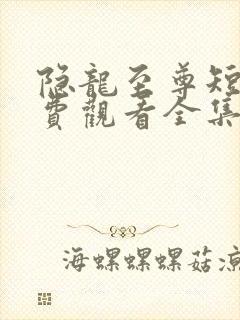 隐龍至尊短
費觀看全集
海螺螺螺菇涼